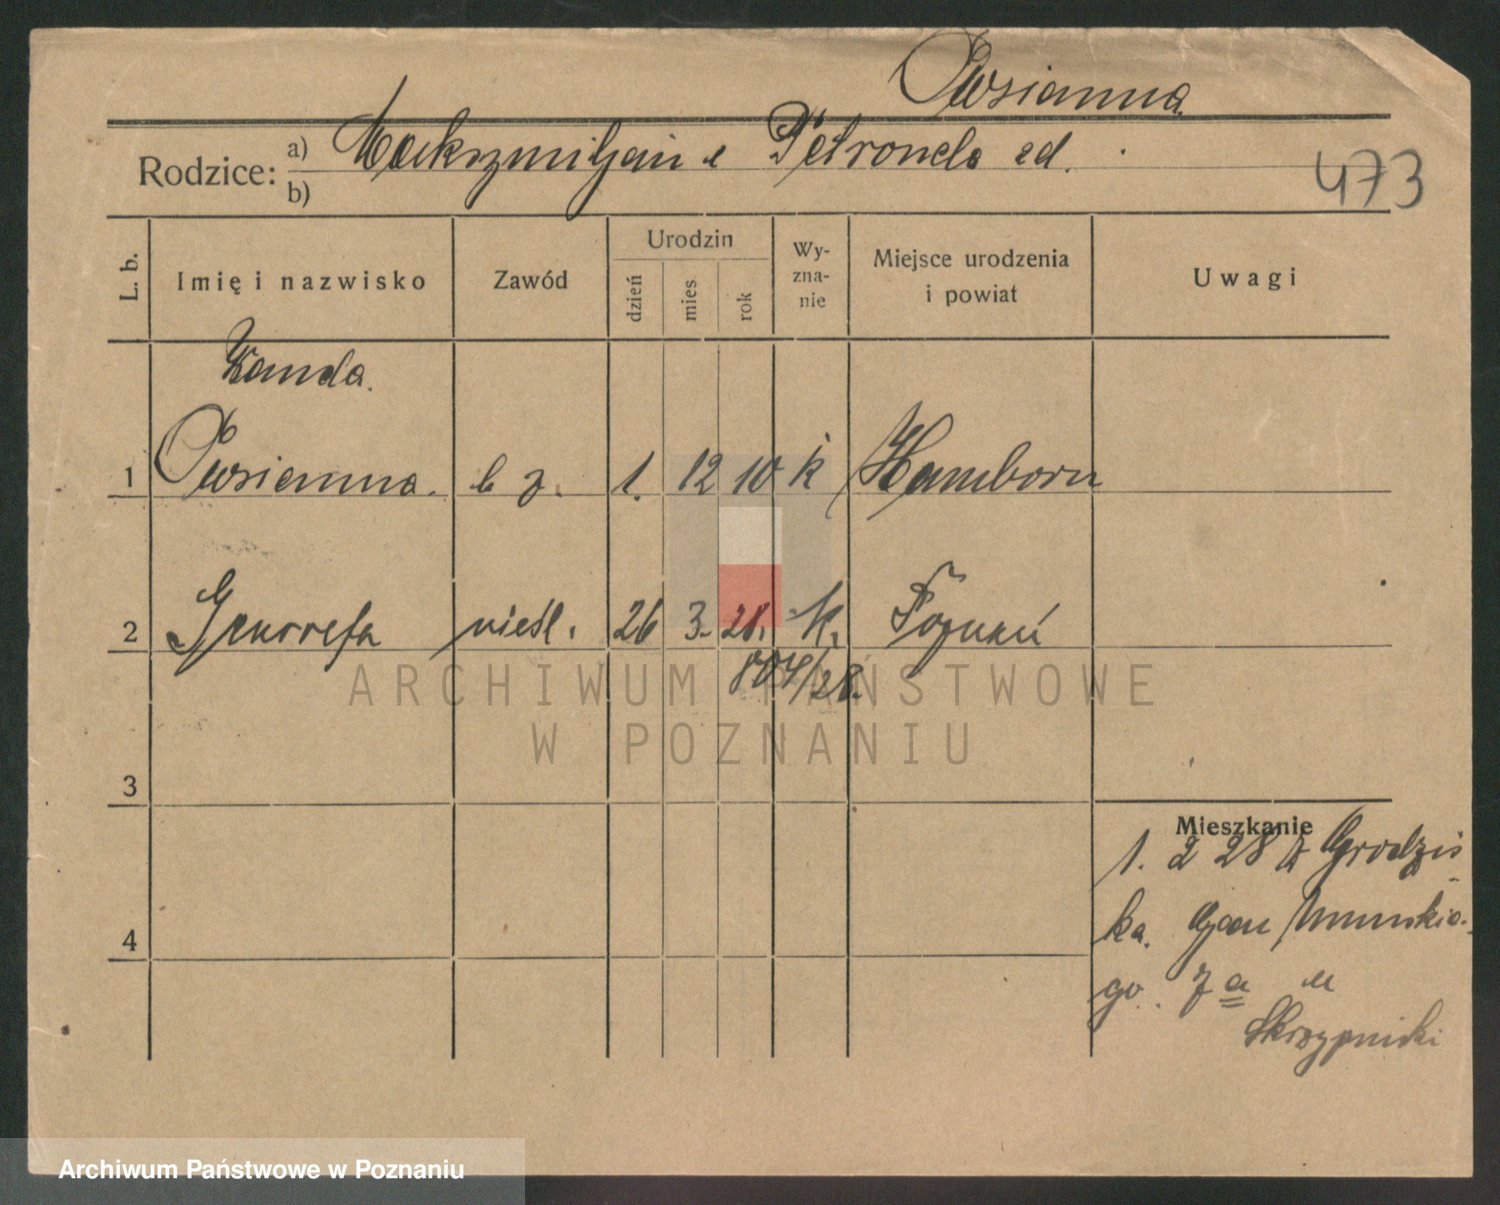 Owsianna
Rodzice: a) Maksymiljan i Petronela zd.
b)
473
L. b.
Imię i nazwisko
Zawód
Urodzin
dzień
mies
rok
Wy-
zna-
nie
Miejsce urodzenia
i powiat
Uwagi
Wanda.
1 Owsianna. b z. 1. 12 10 k Hamborn
2 Genowefa nieśl. 26 3. 28. k. Poznań
804/28.
3
4
Mieszkanie
1. 2 28 Grodzis
ka.
go. 7 a u
Skrzypnicki
ARCHIWUM PAŃSTWOWE
W POZNANIU
Archiwum Państwowe w Poznaniu